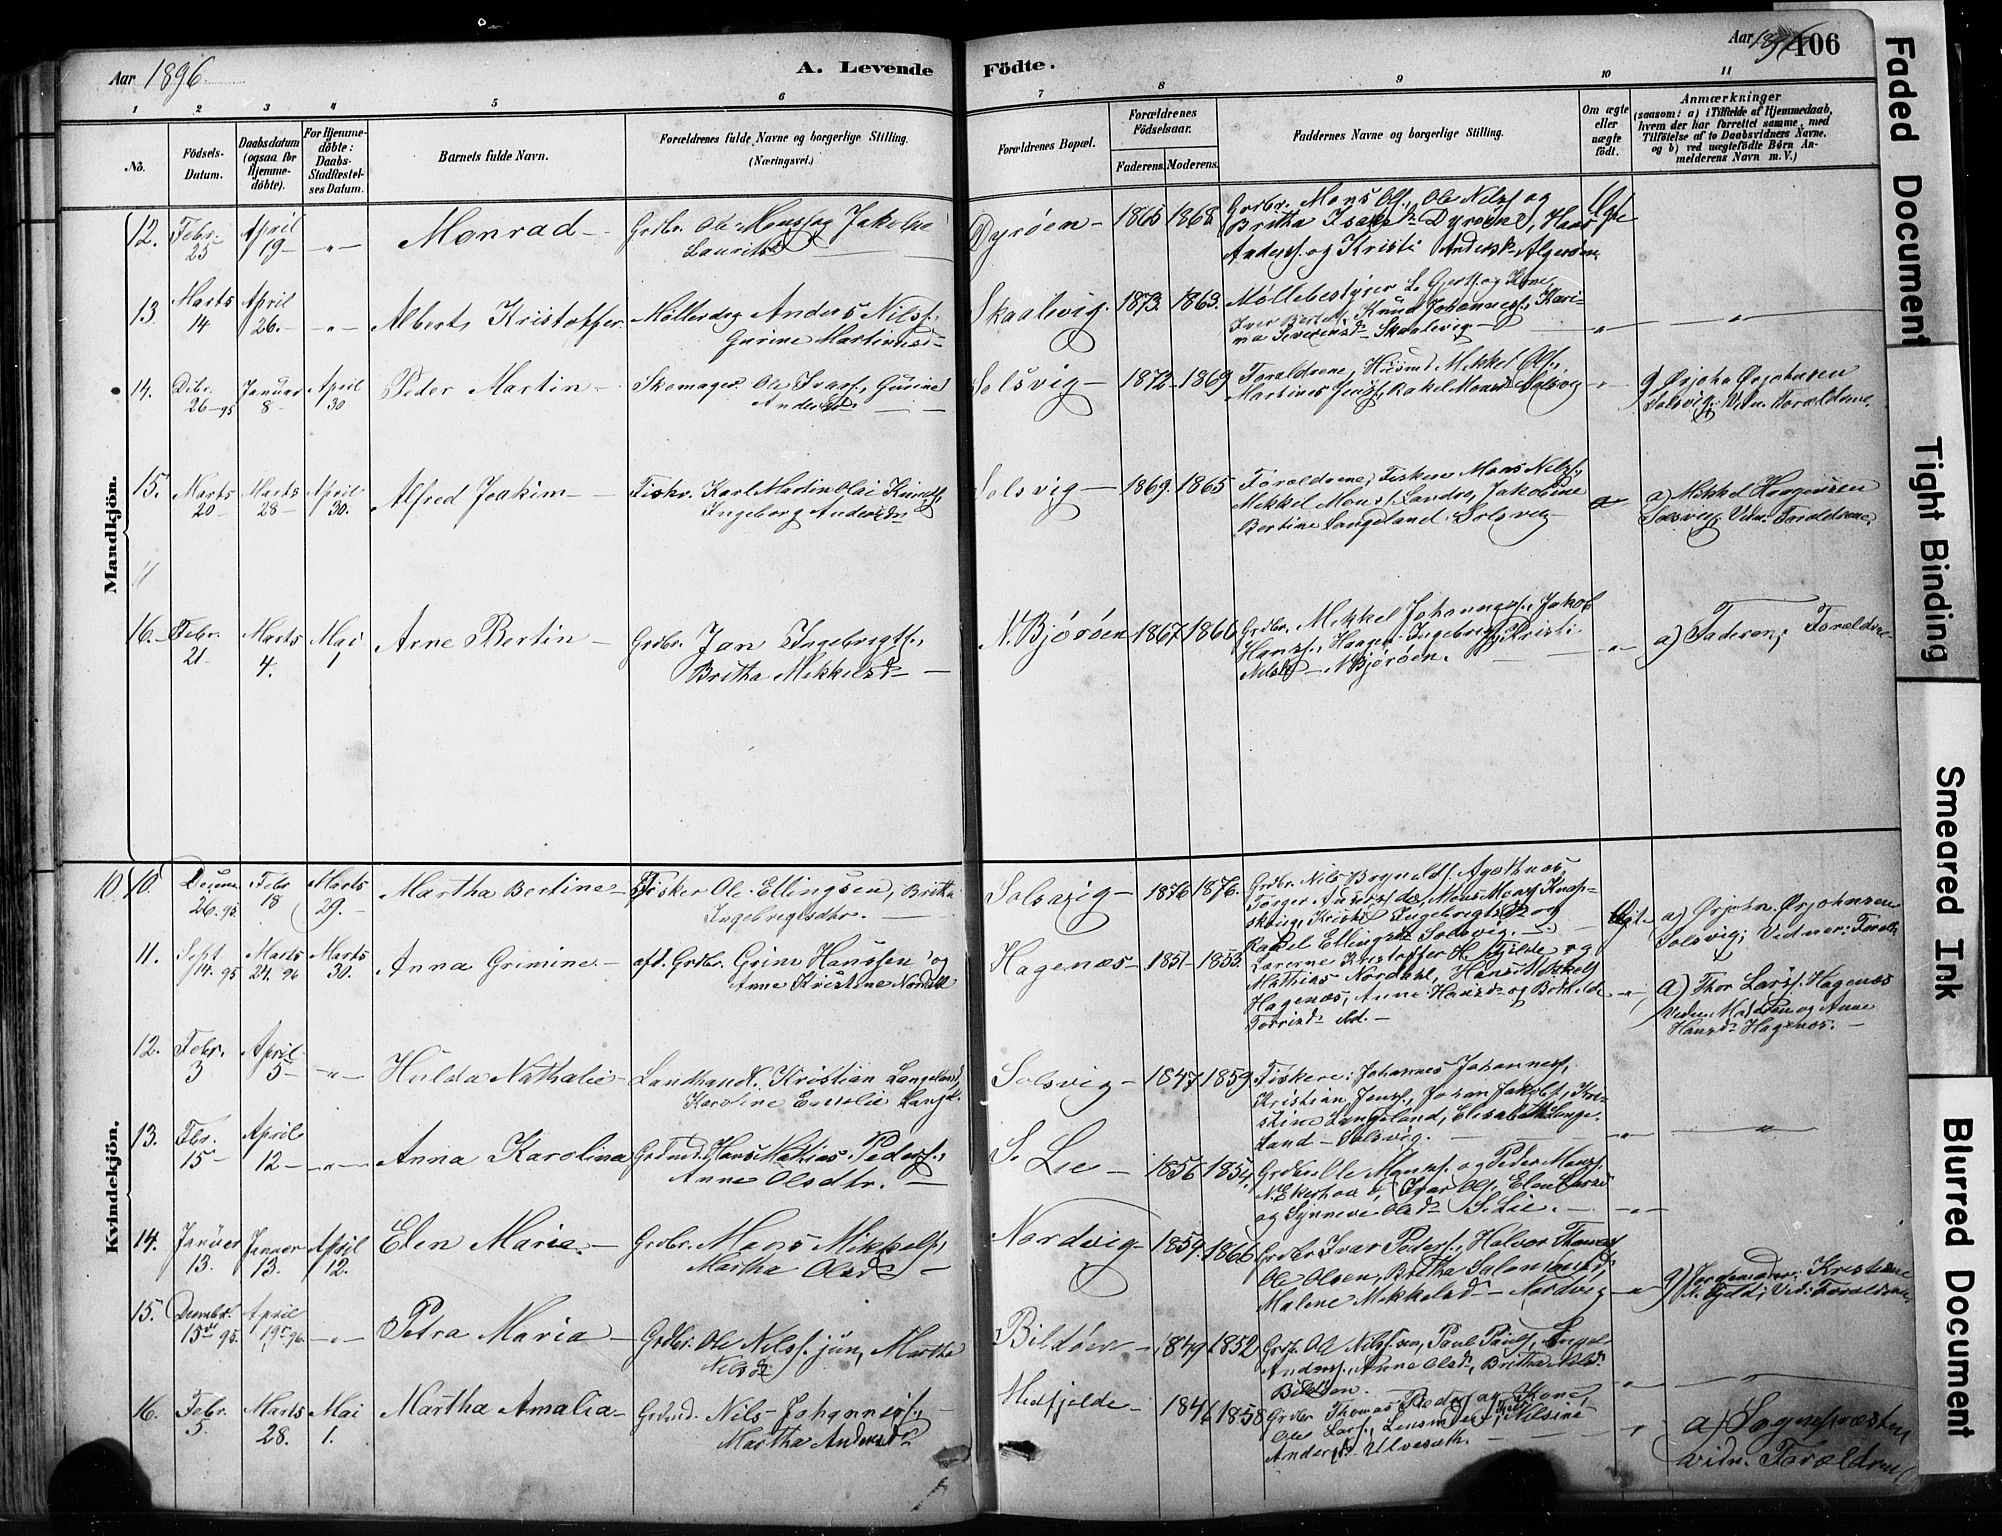 Aar 1896
A. Levende Födte.
Aar 1896
106
1 2 3 4 5 6 7 8 9 10 11
No.
Födsels-Datum.
Daabsdatum (ogsaa for Hjemme-döbte).
For Hjemme-döbte: Daabs-Stadfæstel-ses Datum.
Barnets fulde Navn.
Forældrenes fulde Navne og borgerlige Stilling. (Næringsvei.)
Forældrenes Bopæl.
Forældrenes Födselsaar.
Faderens. Moderens.
Faddernes Navne og borgerlige Stilling.
Om ægte eller uægte födt.
Anmærkninger
(saasom: a) i Tilfælde af Hjemmedaab, hvem der har forrettet samme, med Tilföielse af to Daabsvidners Navne, og b) ved uægtefödte Børn An-melderens Navn m. V.)
Mandkjön.
12. Febr. 25 April 19 - " - Monrad - Grdbr. Ole Monss. og Jakobie Lauritsd.
Dyröen - 1865 1868 Gdbr. Mons Ols., Ole Nilss. og
Britha Isaksd. Dyröen, Hans
Anders. og Kristi Andersd. Algeröen
Ægte
13 Marts 14 April 26. - " - Albert Kristoffer Möllerdr. Anders Nilss.,
Gurine Martinusd.
Skaalvig. 1873. 1863. Möllebestyrer L. Gjerts. og Kone,
Knud Johanness., Kari-
na Severinsd. Skaalvig - " "
14. Dcbr. 26-95 Januar 8- April 30 Peder Martin - Skomager Ole Ivars., Gurine
Andersd.
Solsvig - 1872 - 1869 Forældrene, Husmd. Mikkel Ols.,
Rakel Monsd. Solsvig - " -
Ørjohn Ørjohnsen
Solsvig; Vidn. Forældrene.
15. Marts 20 Marts 28 - April 30. Alfred Joakim - Fiskr. Karl Martin Olai Knuds.
Ingeborg Andersd.
Solsvig - 1869. 1865 Forældrene, Fiskere Mons Nilss.,
Mikkel Monss. Sandvo, Jakobine
Bertine Langeland, Solsvig
a) Mikkel Haagensen
Solsvig, Vidn. Forældrene.
16. Febr. 21 - Marts 4. Mai 1 Arne Bertin - Grdbr. Jan Ingebrigts.,
Britha Mikkelsd. -
N. Björöen 1867. 1866 Grdbr. Mikkel Johanness., Jakob
Hanss., Haagen Ingebrigts., Kristi
Nilsd. - N. Björöen. - " -
a) Faderen; Forældrene
Kvindekjön.
10 10. Decem. 26. 95. Febr 18 Marts 29. - Martha Bertine - Fisker Ole Ellingsen, Britha
Ingebrigtsdtr.
Solsvig - 1876 1876. Grdbr. Nils Bognulds. Agothnes
Kristi Ingebrigtsd. og
Rakel Ellingsd. Solsvig.
Ægte. a) Ørjohn Ørjohnsen
Solsvig; Vidner: Foræld.
11. Sept 14. 95 Marts 24. 96 Marts 30. Anna Grimine - afd. Grdbr. Grim Hanssen og
Anne Kristine Nordahl
Hagenæs - 1851 - 1853. Lærerne Kristoffer H. Fjelde og
Mathias Nordahl, Hans Mikkels.
Hagenæs, Anne Hansd. og Bothilde
" a) Thor Larss. Hagenæs
Vidn. Moderen og Anne
Hansd. Hagenæs. -
12. Febr. 3 April 5 - - " - Hulda Nathalie - Landhandl. Kristian Langeland,
Karoline Emilie Langel.
Solsvig - 1847 1859. Fiskere: Johannes Johanness.,
Kristian Jenss., Johan Jakobs., Kri-
stine Langeland, Elisabeth Lange-
land - Solsvig. - " - "
13. Fbr. 15 - April 12 - - " - Anna Karolina Grdmd. Hans Mathias Peders.,
Anne Olsdtr. -
S. Lie - 1856 1854, Grdbr. Ole Monss. og Peder Monss.
N. Ekerhovd, Ivar Ols. Elen Larsd.
og Synneve Olsd. S. Lie. - " -
14. Januar 13. Januar 13. April 12. Elen Marie. - Grdbr. Mons Mikkels.,
Martha Olsd. -
Nordvig - 1859. 1866 Grdbr. Ivar Peders., Halvor Thomass.
Ole Olsen, Britha Salomonsd.,
Malene Mikkelsd. - Nordvig - " -
a) Jordemoder: Kristiane
Fjeld; Vid: Forældrene.
15. Decembr. 15de 95. April 19. 96. - " - Petra Maria - Grdbr. Ole Nilss. jün, Martha
Nilsd.
Bildöen - 1849 1852 Grdbr. Ole Nilssen, Paul Pauls., Engel
Anders., Anne Olsd., Britha Nilsd.
Bildöen. - "
16. Febr. 5. Marts 28. Mai 1. Martha Amalia - Grdmd. Nils Johanness.,
Martha Andersd.
Midtfjelde - 1846 1858 Grdbr Thomas Peders. og Kone,
Ole Lars., Nilsine
Andersd. Ulvesæth. - "
a) Sognepræsten
Vidn. Forældrene
Faded Document
Tight Binding
Smeared Ink
Blurred Document